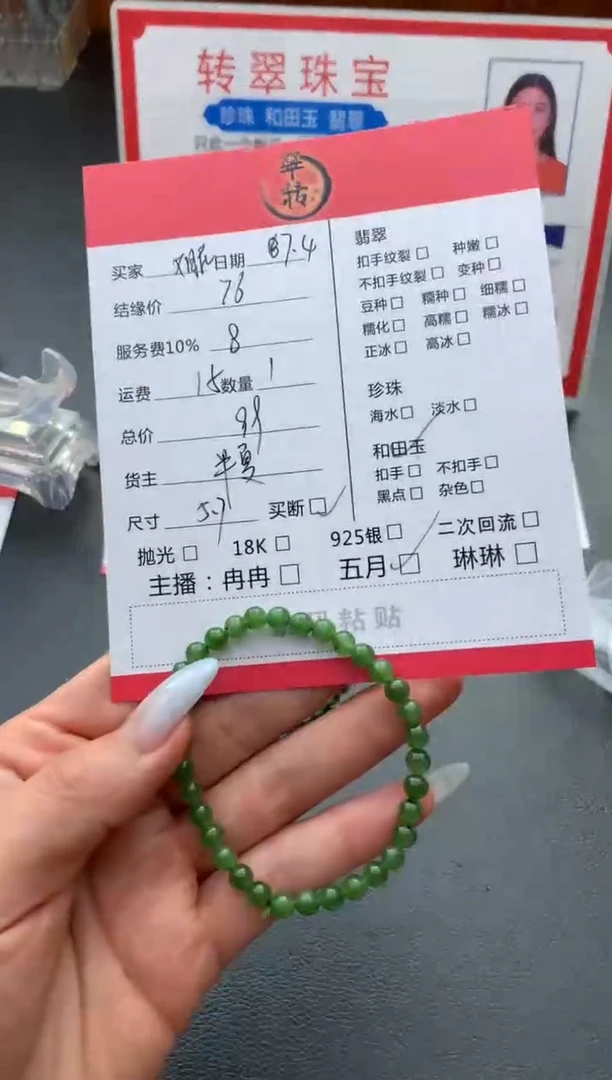 转翠珠宝
珍珠 和田玉 翡翠
翠转
买家 日期 7.4
结缘价 76
服务费10% 8
运费 15 数量 1
总价 99
货主 半夏
尺寸 5.7 买断
抛光 18K 925银 二次回流
主播：冉冉 五月 琳琳
粘贴
翡翠
扣手纹裂 种嫩
不扣手纹裂 变种
豆种 糯种 细糯
糯化 高糯 糯冰
正冰 高冰
珍珠
海水 淡水
和田玉
扣手 不扣手
黑点 杂色